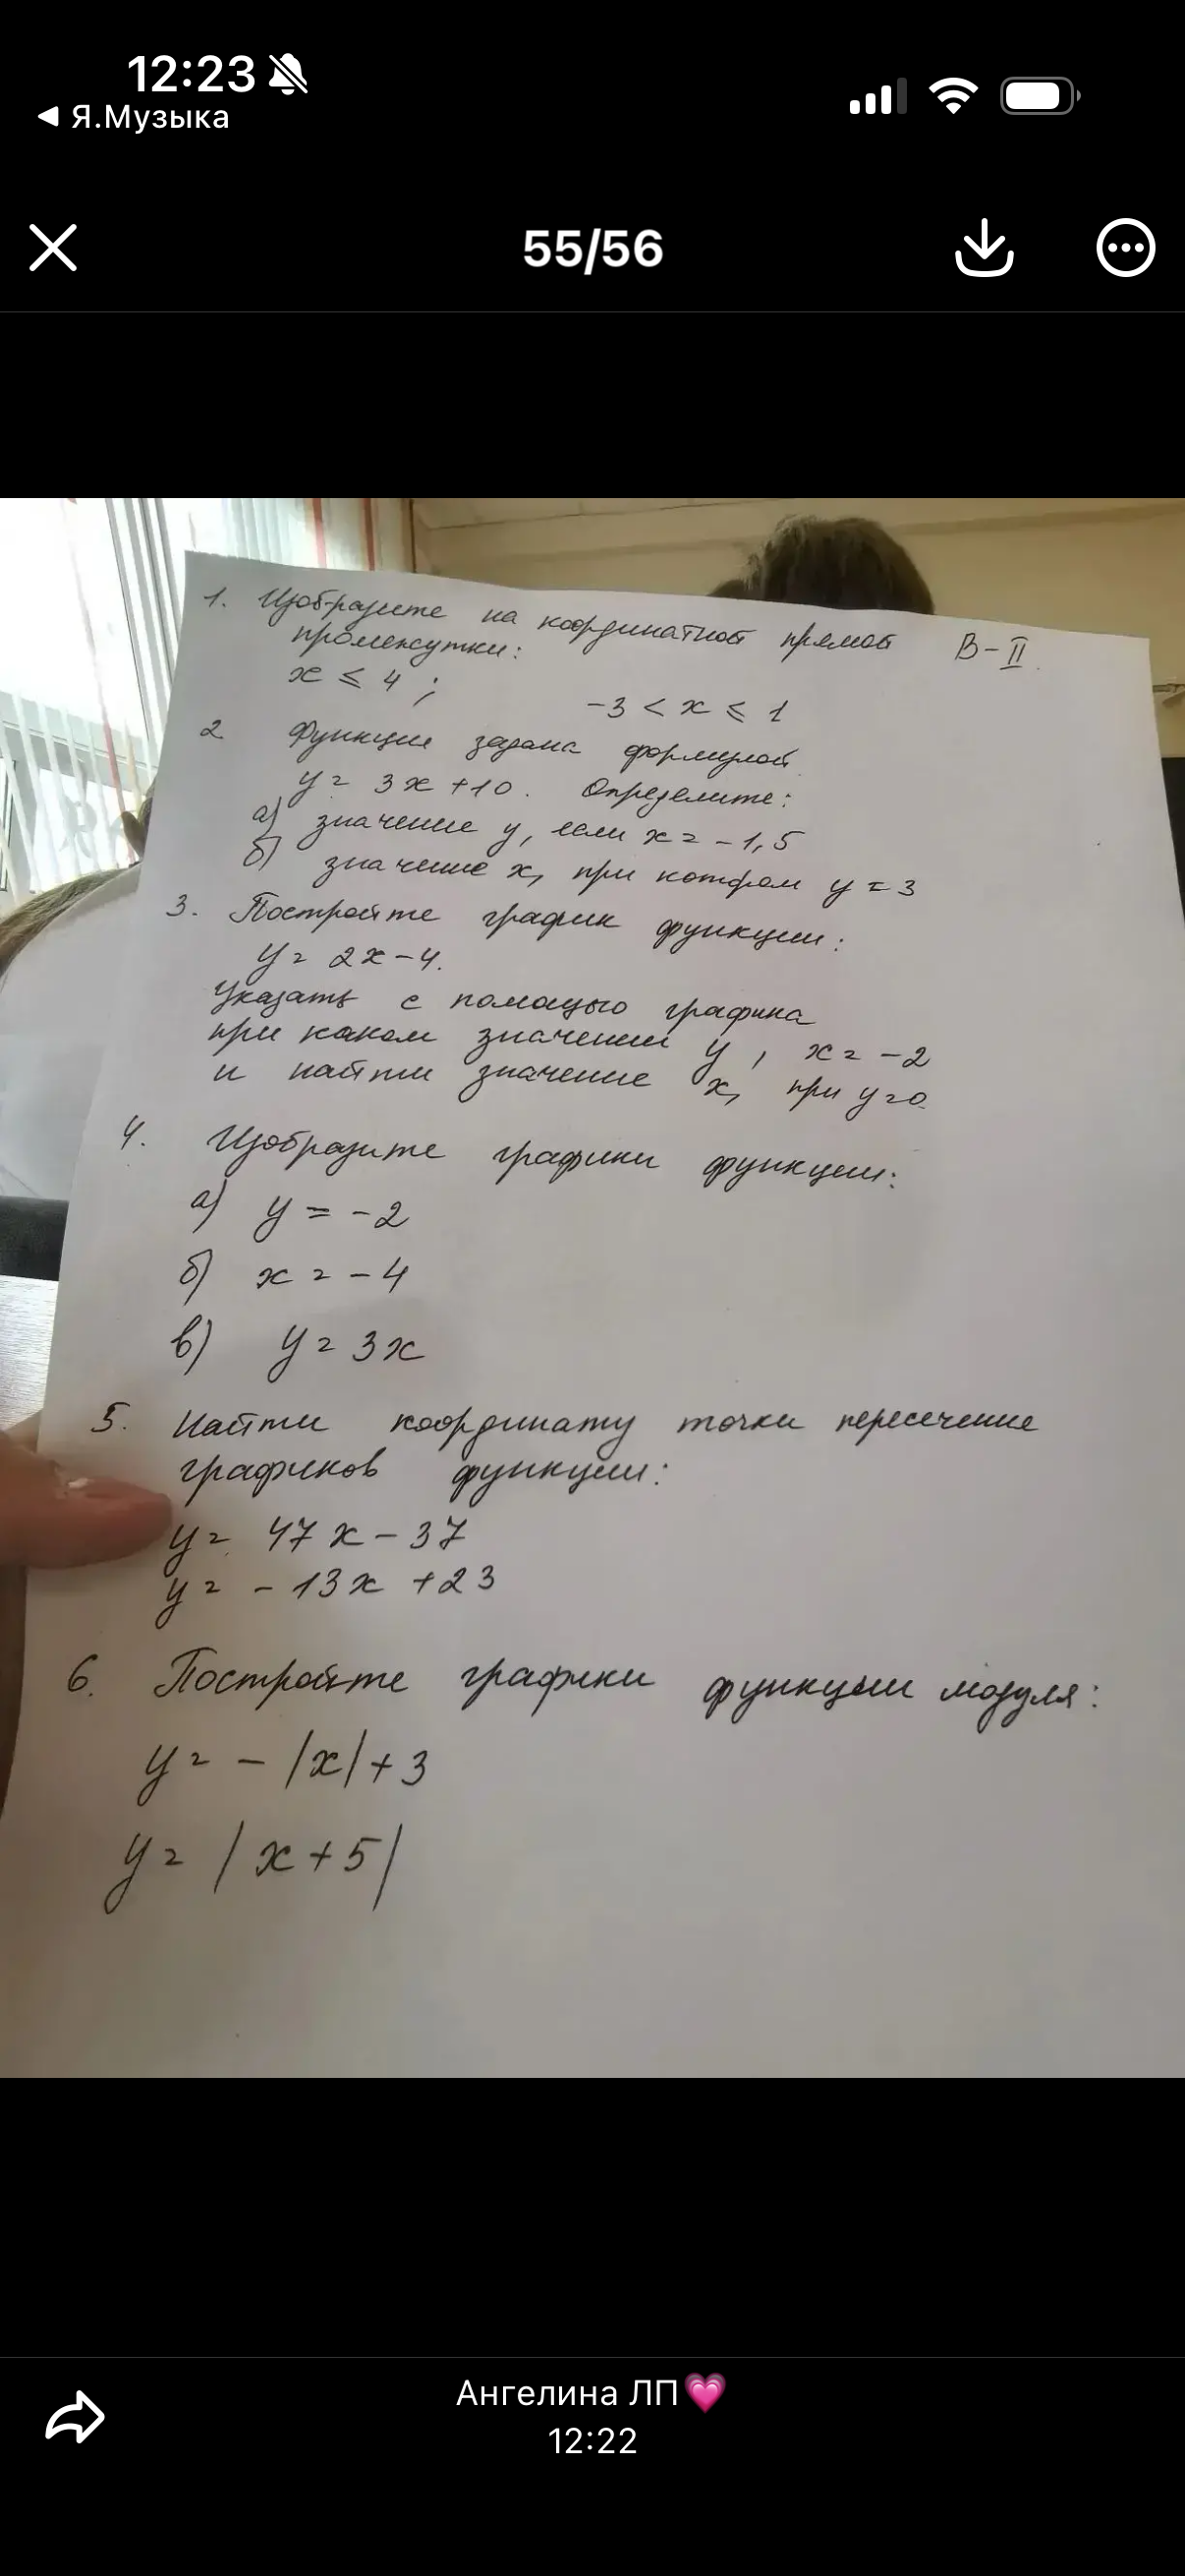 12:23
◀ Я.Музыка
55/56
1. Изобразите на координатной прямой В-II
промежутки:
x ≤ 4 ; -3 < x ≤ 1
2 Функция задана формулой
y = 3x + 10. Определите:
а) значение y, если x = -1,5
б) значение x, при котором y = 3
3. Постройте график функции:
y = 2x - 4.
Указать с помощью графика
при каком значении y, x = -2
и найти значение x, при y=0.
4. Изобразите графики функции:
а) y = -2
б) x = -4
в) y = 3x
5. Найти координату точки пересечение
графиков функции:
y = 47x - 37
y = -13x + 23
6. Постройте графики функции модуля:
y = -|x|+3
y = |x+5|
Ангелина ЛП💗
12:22